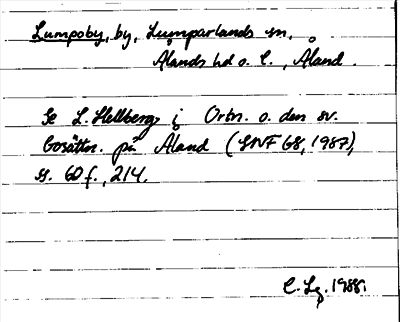 Lumpoby, by, Lumparlands sn,
Ålands hd o. l., Åland.
Se L. Hellberg i Ortn. o. den sv.
bosättn. på Åland (SNF 68, 1987),
s. 60 f., 214.
C. Lg. 1988.